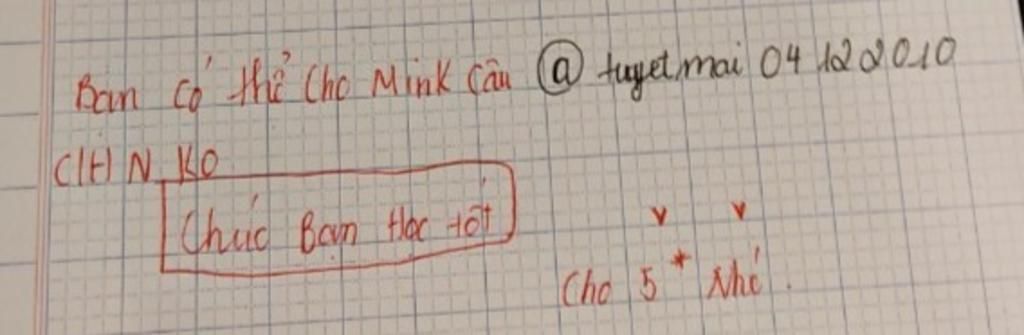 Bạn có thể Cho Mink Câu @ tuyetmai 04122010
CTHN KO
Chúc Bạn Học tốt
Cho 5* Nhé.